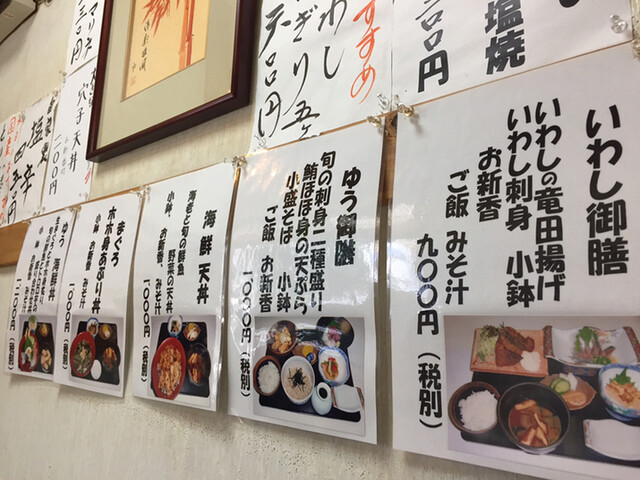 いわし御膳
いわしの竜田揚げ
いわし刺身 小鉢
お新香
ご飯 みそ汁
九〇〇円(税別)
ゆう御膳
旬の刺身二種盛り
鮪ほほ身の天ぷら
小盛そば 小鉢
ご飯 お新香
一〇〇〇円(税別)
海鮮天丼
海老と旬の鮮魚
野菜の天丼
小鉢、お新香、みそ汁
一〇〇〇円(税別)
まぐろ
ホホ身あぶり丼
小鉢 お新香 みそ汁
一〇〇〇円(税別)
ゆう 海鮮丼
塩焼
〇〇円
すすめ
いわし
にぎり五ヶ
七〇〇円
穴子天丼